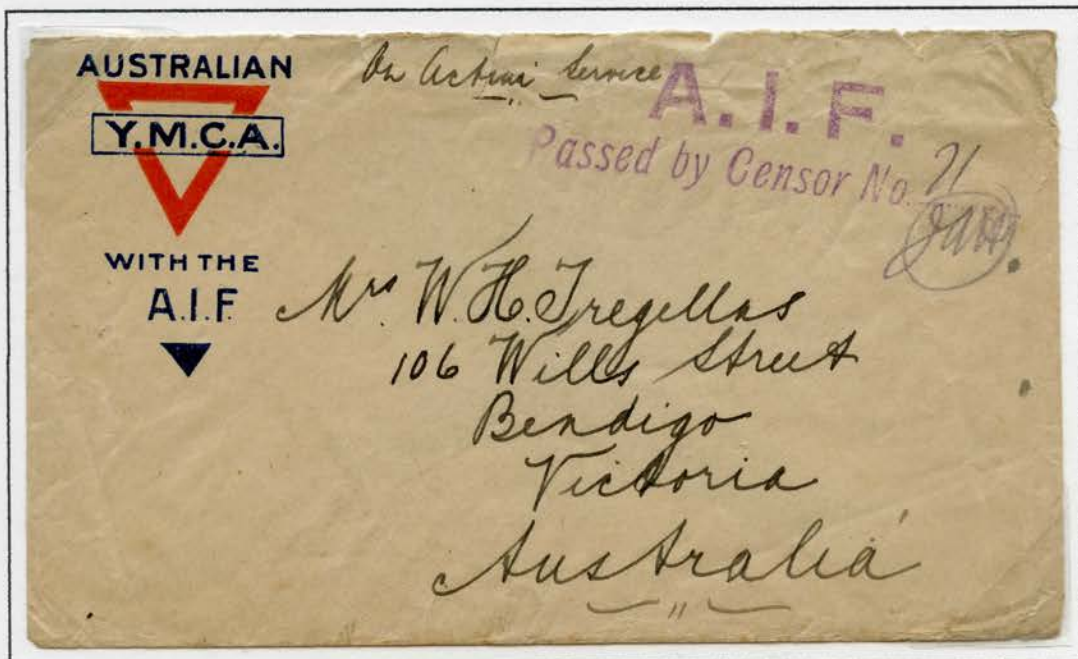 AUSTRALIAN
Y.M.C.A.
WITH THE
A.I.F.
On Active Service
A.I.F.
Passed by Censor No. 71
Mrs W. H. Tregellas
106 Wills Street
Bendigo
Victoria
Australia